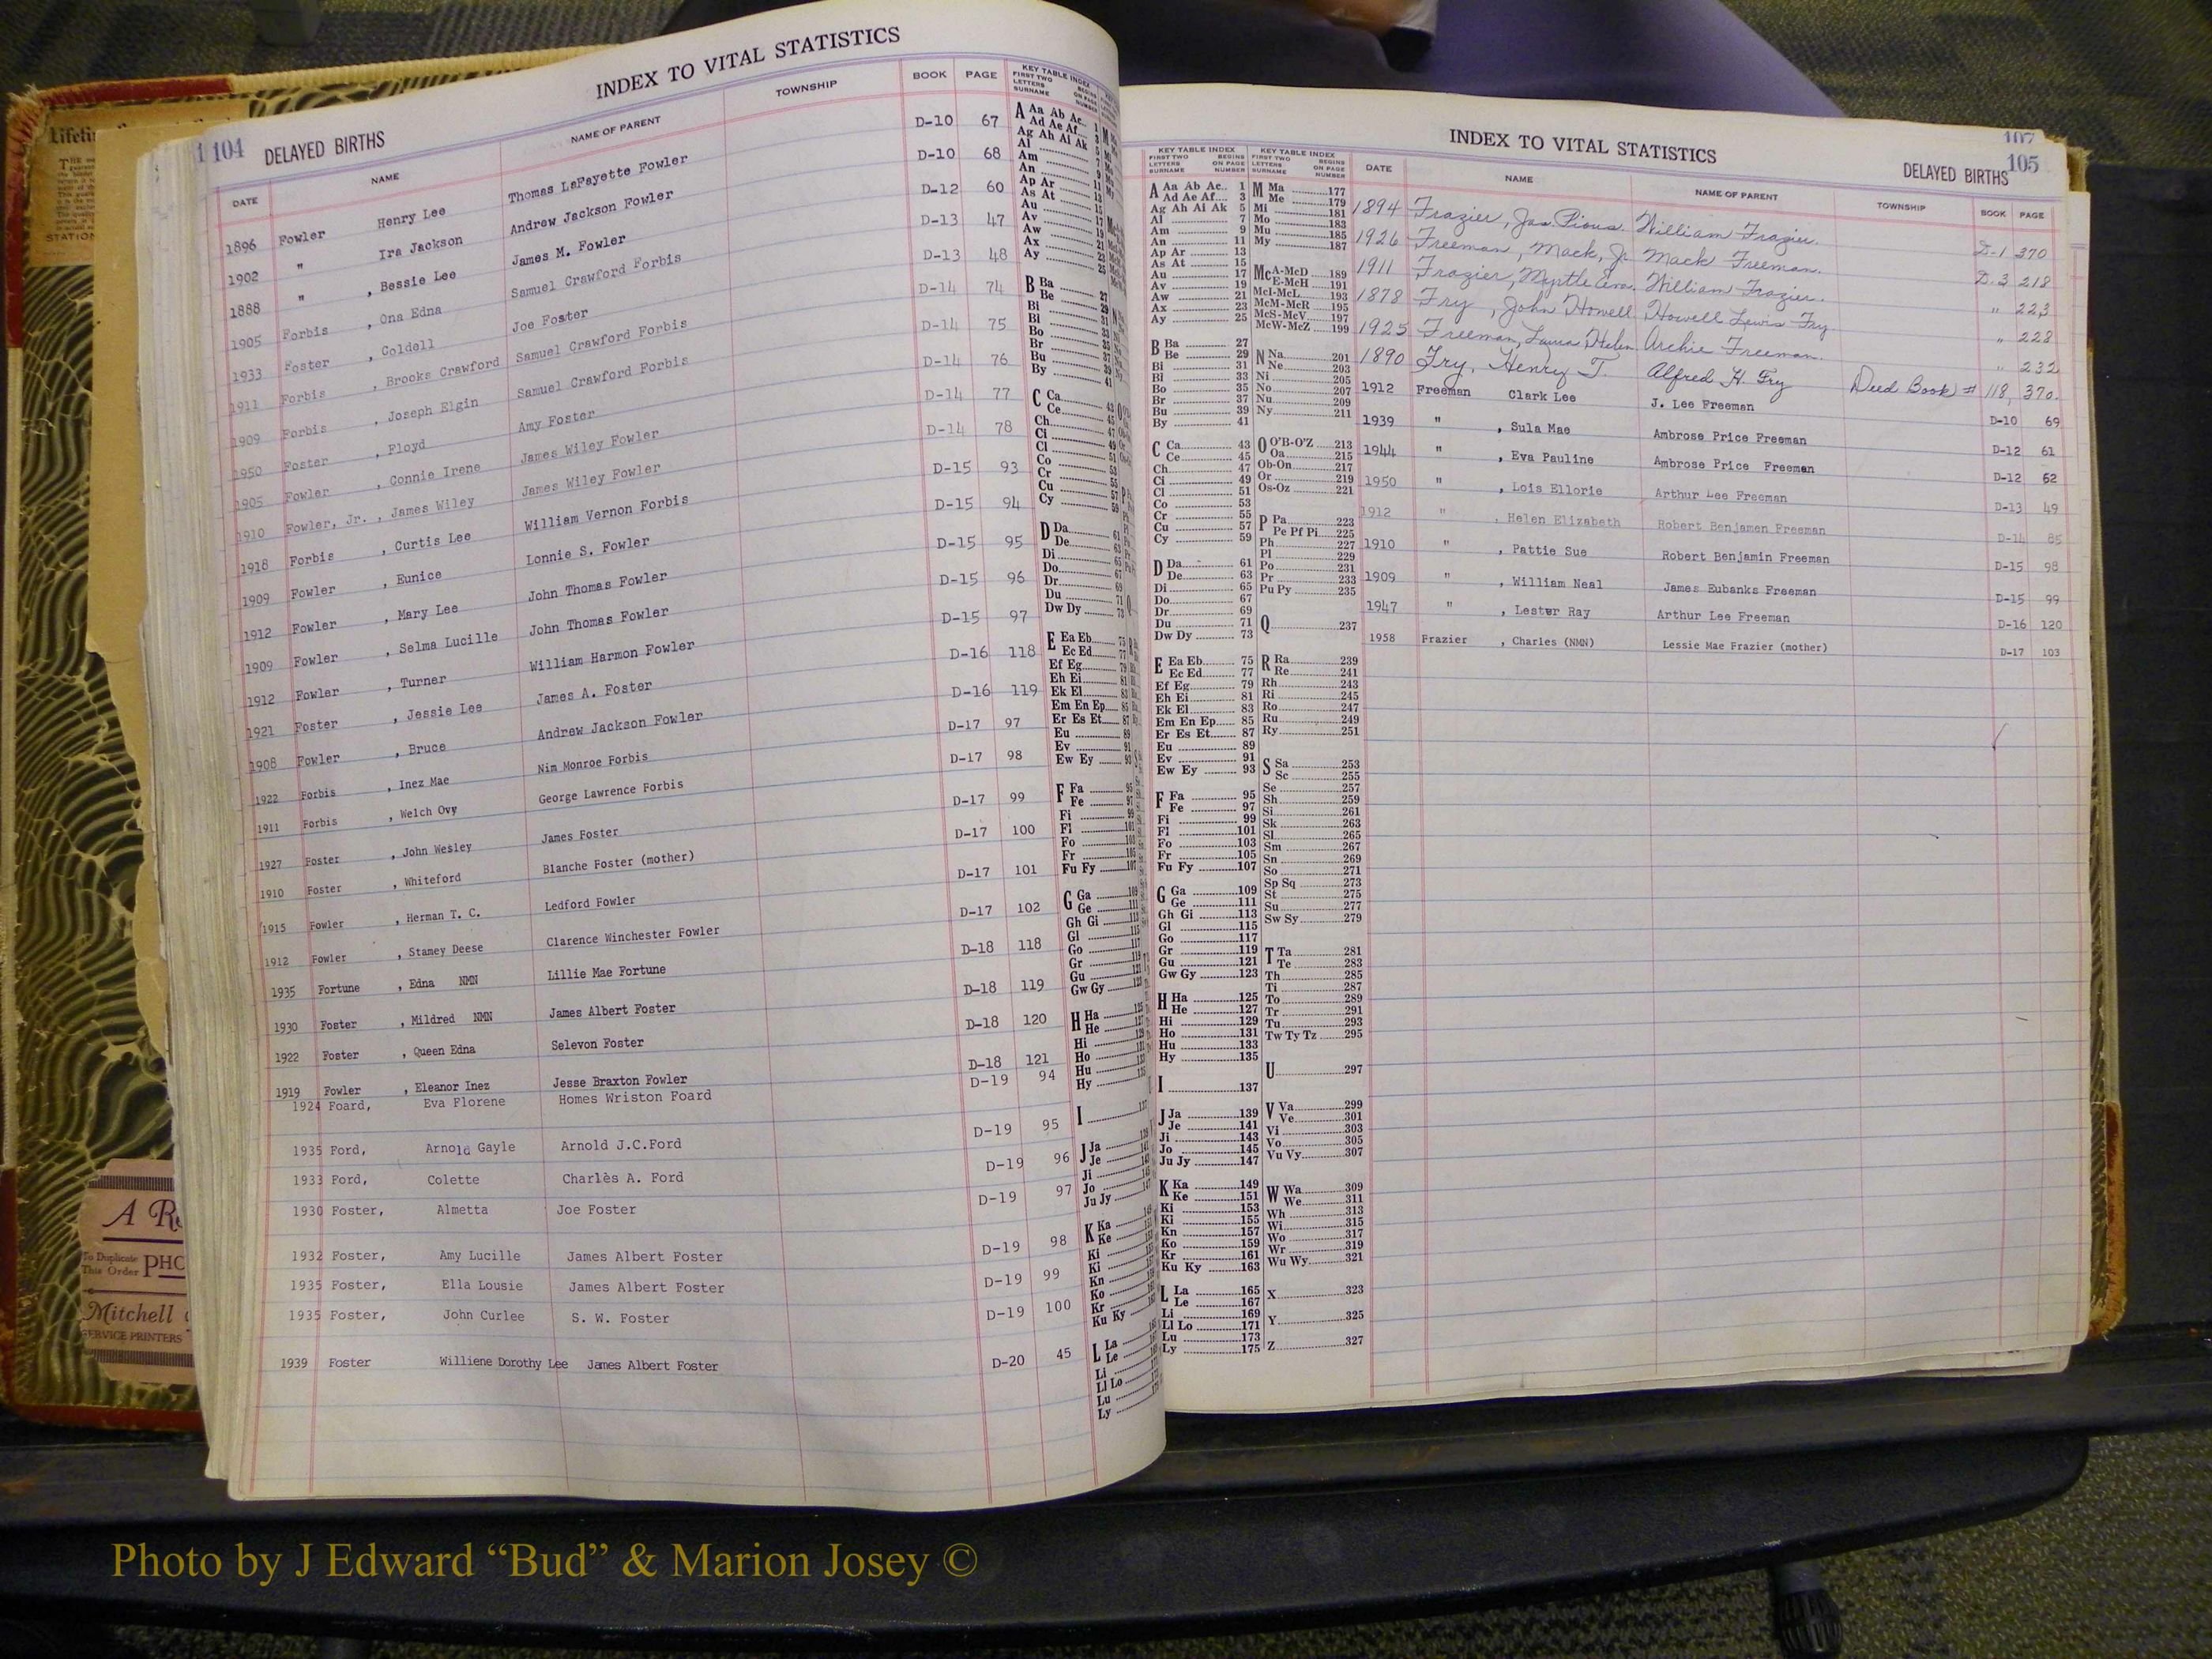 INDEX TO VITAL STATISTICS
104 DELAYED BIRTHS
DATE NAME NAME OF PARENT TOWNSHIP BOOK PAGE
1896 Fowler Henry Lee Thomas LaFayette Fowler D-10 67
1902 " Ira Jackson Andrew Jackson Fowler D-10 68
1888 " , Bessie Lee James M. Fowler D-12 60
1905 Forbis , Ona Edna Samuel Crawford Forbis D-13 47
1933 Foster , Coldell Joe Foster D-13 48
1911 Forbis , Brooks Crawford Samuel Crawford Forbis D-14 74
1909 Forbis , Joseph Elgin Samuel Crawford Forbis D-14 75
1950 Foster , Floyd Amy Foster D-14 76
1905 Fowler , Connie Irene James Wiley Fowler D-14 77
1910 Fowler, Jr. , James Wiley James Wiley Fowler D-14 78
1918 Forbis , Curtis Lee William Vernon Forbis D-15 93
1909 Fowler , Eunice Lonnie S. Fowler D-15 94
1912 Fowler , Mary Lee John Thomas Fowler D-15 95
1909 Fowler , Selma Lucille John Thomas Fowler D-15 96
1912 Fowler , Turner William Harmon Fowler D-15 97
1921 Foster , Jessie Lee James A. Foster D-16 118
1908 Fowler , Bruce Andrew Jackson Fowler D-16 119
1922 Forbis , Inez Mae Nim Monroe Forbis D-17 97
1911 Forbis , Welch Ovy George Lawrence Forbis D-17 98
1927 Foster , John Wesley James Foster D-17 99
1910 Foster , Whiteford Blanche Foster (mother) D-17 100
1915 Fowler , Herman T. C. Ledford Fowler D-17 101
1912 Fowler , Stamey Deese Clarence Winchester Fowler D-17 102
1935 Fortune , Edna NMN Lillie Mae Fortune D-18 118
1930 Foster , Mildred NMN James Albert Foster D-18 119
1922 Foster , Queen Edna Selevon Foster D-18 120
1919 Fowler , Eleanor Inez Jesse Braxton Fowler D-18 121
1924 Foard, Eva Florene Homes Wriston Foard D-19 94
1935 Ford, Arnold Gayle Arnold J.C.Ford D-19 95
1933 Ford, Colette Charles A. Ford D-19 96
1930 Foster, Almetta Joe Foster D-19 97
1932 Foster, Amy Lucille James Albert Foster D-19 98
1935 Foster, Ella Lousie James Albert Foster D-19 99
1935 Foster, John Curlee S. W. Foster D-19 100
1939 Foster Williene Dorothy Lee James Albert Foster D-20 45
INDEX TO VITAL STATISTICS
107
DELAYED BIRTHS 105
DATE NAME NAME OF PARENT TOWNSHIP BOOK PAGE
1894 Frazier, Jas. Pious. William Frazier. D-1 370
1926 Freeman, Mack, Jr. Mack Freeman. D-3 218
1911 Frazier, Myrtle William Frazier. " 223
1878 Fry , John Howell Howell Lewis Fry. " 228
1925 Freeman, Laura Helen. Archie Freeman. " 232
1890 Fry, Henry T. Alfred H. Fry Deed Book # 118, 370.
1912 Freeman Clark Lee J. Lee Freeman D-10 69
1939 " , Sula Mae Ambrose Price Freeman D-12 61
1944 " , Eva Pauline Ambrose Price Freeman D-12 62
1950 " , Lois Ellorie Arthur Lee Freeman D-13 49
1912 " , Helen Elizabeth Robert Benjamen Freeman D-14 85
1910 " , Pattie Sue Robert Benjamin Freeman D-15 98
1909 " , William Neal James Eubanks Freeman D-15 99
1947 " , Lester Ray Arthur Lee Freeman D-16 120
1958 Frazier , Charles (NMN) Lessie Mae Frazier (mother) D-17 103
KEY TABLE INDEX
FIRST TWO LETTERS SURNAME BEGINS ON PAGE NUMBER
A Aa Ab Ac 1
Ad Ae Af 3
Ag Ah Ai Ak 5
Al 7
Am 9
An 11
Ap Ar 13
As At 15
Au 17
Av 19
Aw 21
Ax 23
Ay 25
B Ba 27
Be 29
Bi 31
Bl 33
Bo 35
Br 37
Bu 39
By 41
C Ca 43
Ce 45
Ch 47
Ci 49
Cl 51
Co 53
Cr 55
Cu 57
Cy 59
D Da 61
De 63
Di 65
Do 67
Dr 69
Du 71
Dw Dy 73
E Ea Eb 75
Ec Ed 77
Ef Eg 79
Eh Ei 81
Ek El 83
Em En Ep 85
Er Es Et 87
Eu 89
Ev 91
Ew Ey 93
F Fa 95
Fe 97
Fi 99
Fl 101
Fo 103
Fr 105
Fu Fy 107
G Ga 109
Ge 111
Gh Gi 113
Gl 115
Go 117
Gr 119
Gu 121
Gw Gy 123
H Ha 125
He 127
Hi 129
Ho 131
Hu 133
Hy 135
I 137
J Ja 139
Je 141
Ji 143
Jo 145
Ju Jy 147
K Ka 149
Ke 151
Ki 153
Ki 155
Kn 157
Ko 159
Kr 161
Ku Ky 163
L La 165
Le 167
Li 169
Ll Lo 171
Lu 173
Ly 175
KEY TABLE INDEX
FIRST TWO LETTERS SURNAME BEGINS ON PAGE NUMBER
M Ma 177
Me 179
Mi 181
Mo 183
Mu 185
My 187
McA-McD 189
E-McH 191
McI-McL 193
McM-McR 195
McS-McV 197
McW-McZ 199
N Na 201
Ne 203
Ni 205
No 207
Nu 209
Ny 211
O O'B-O'Z 213
Oa 215
Ob-On 217
Or 219
Os-Oz 221
P Pa 223
Pe Pf Pi 225
Ph 227
Pl 229
Po 231
Pr 233
Pu Py 235
Q 237
R Ra 239
Re 241
Rh 243
Ri 245
Ro 247
Ru 249
Ry 251
S Sa 253
Sc 255
Se 257
Sh 259
Si 261
Sk 263
Sl 265
Sm 267
Sn 269
So 271
Sp Sq 273
St 275
Su 277
Sw Sy 279
T Ta 281
Te 283
Th 285
Ti 287
To 289
Tr 291
Tu 293
Tw Ty Tz 295
U 297
V Va 299
Ve 301
Vi 303
Vo 305
Vu Vy 307
W Wa 309
We 311
Wh 313
Wi 315
Wo 317
Wr 319
Wu Wy 321
X 323
Y 325
Z 327
To Duplicate
This Order
Mitchell
SERVICE PRINTERS
Photo by J Edward “Bud” & Marion Josey ©